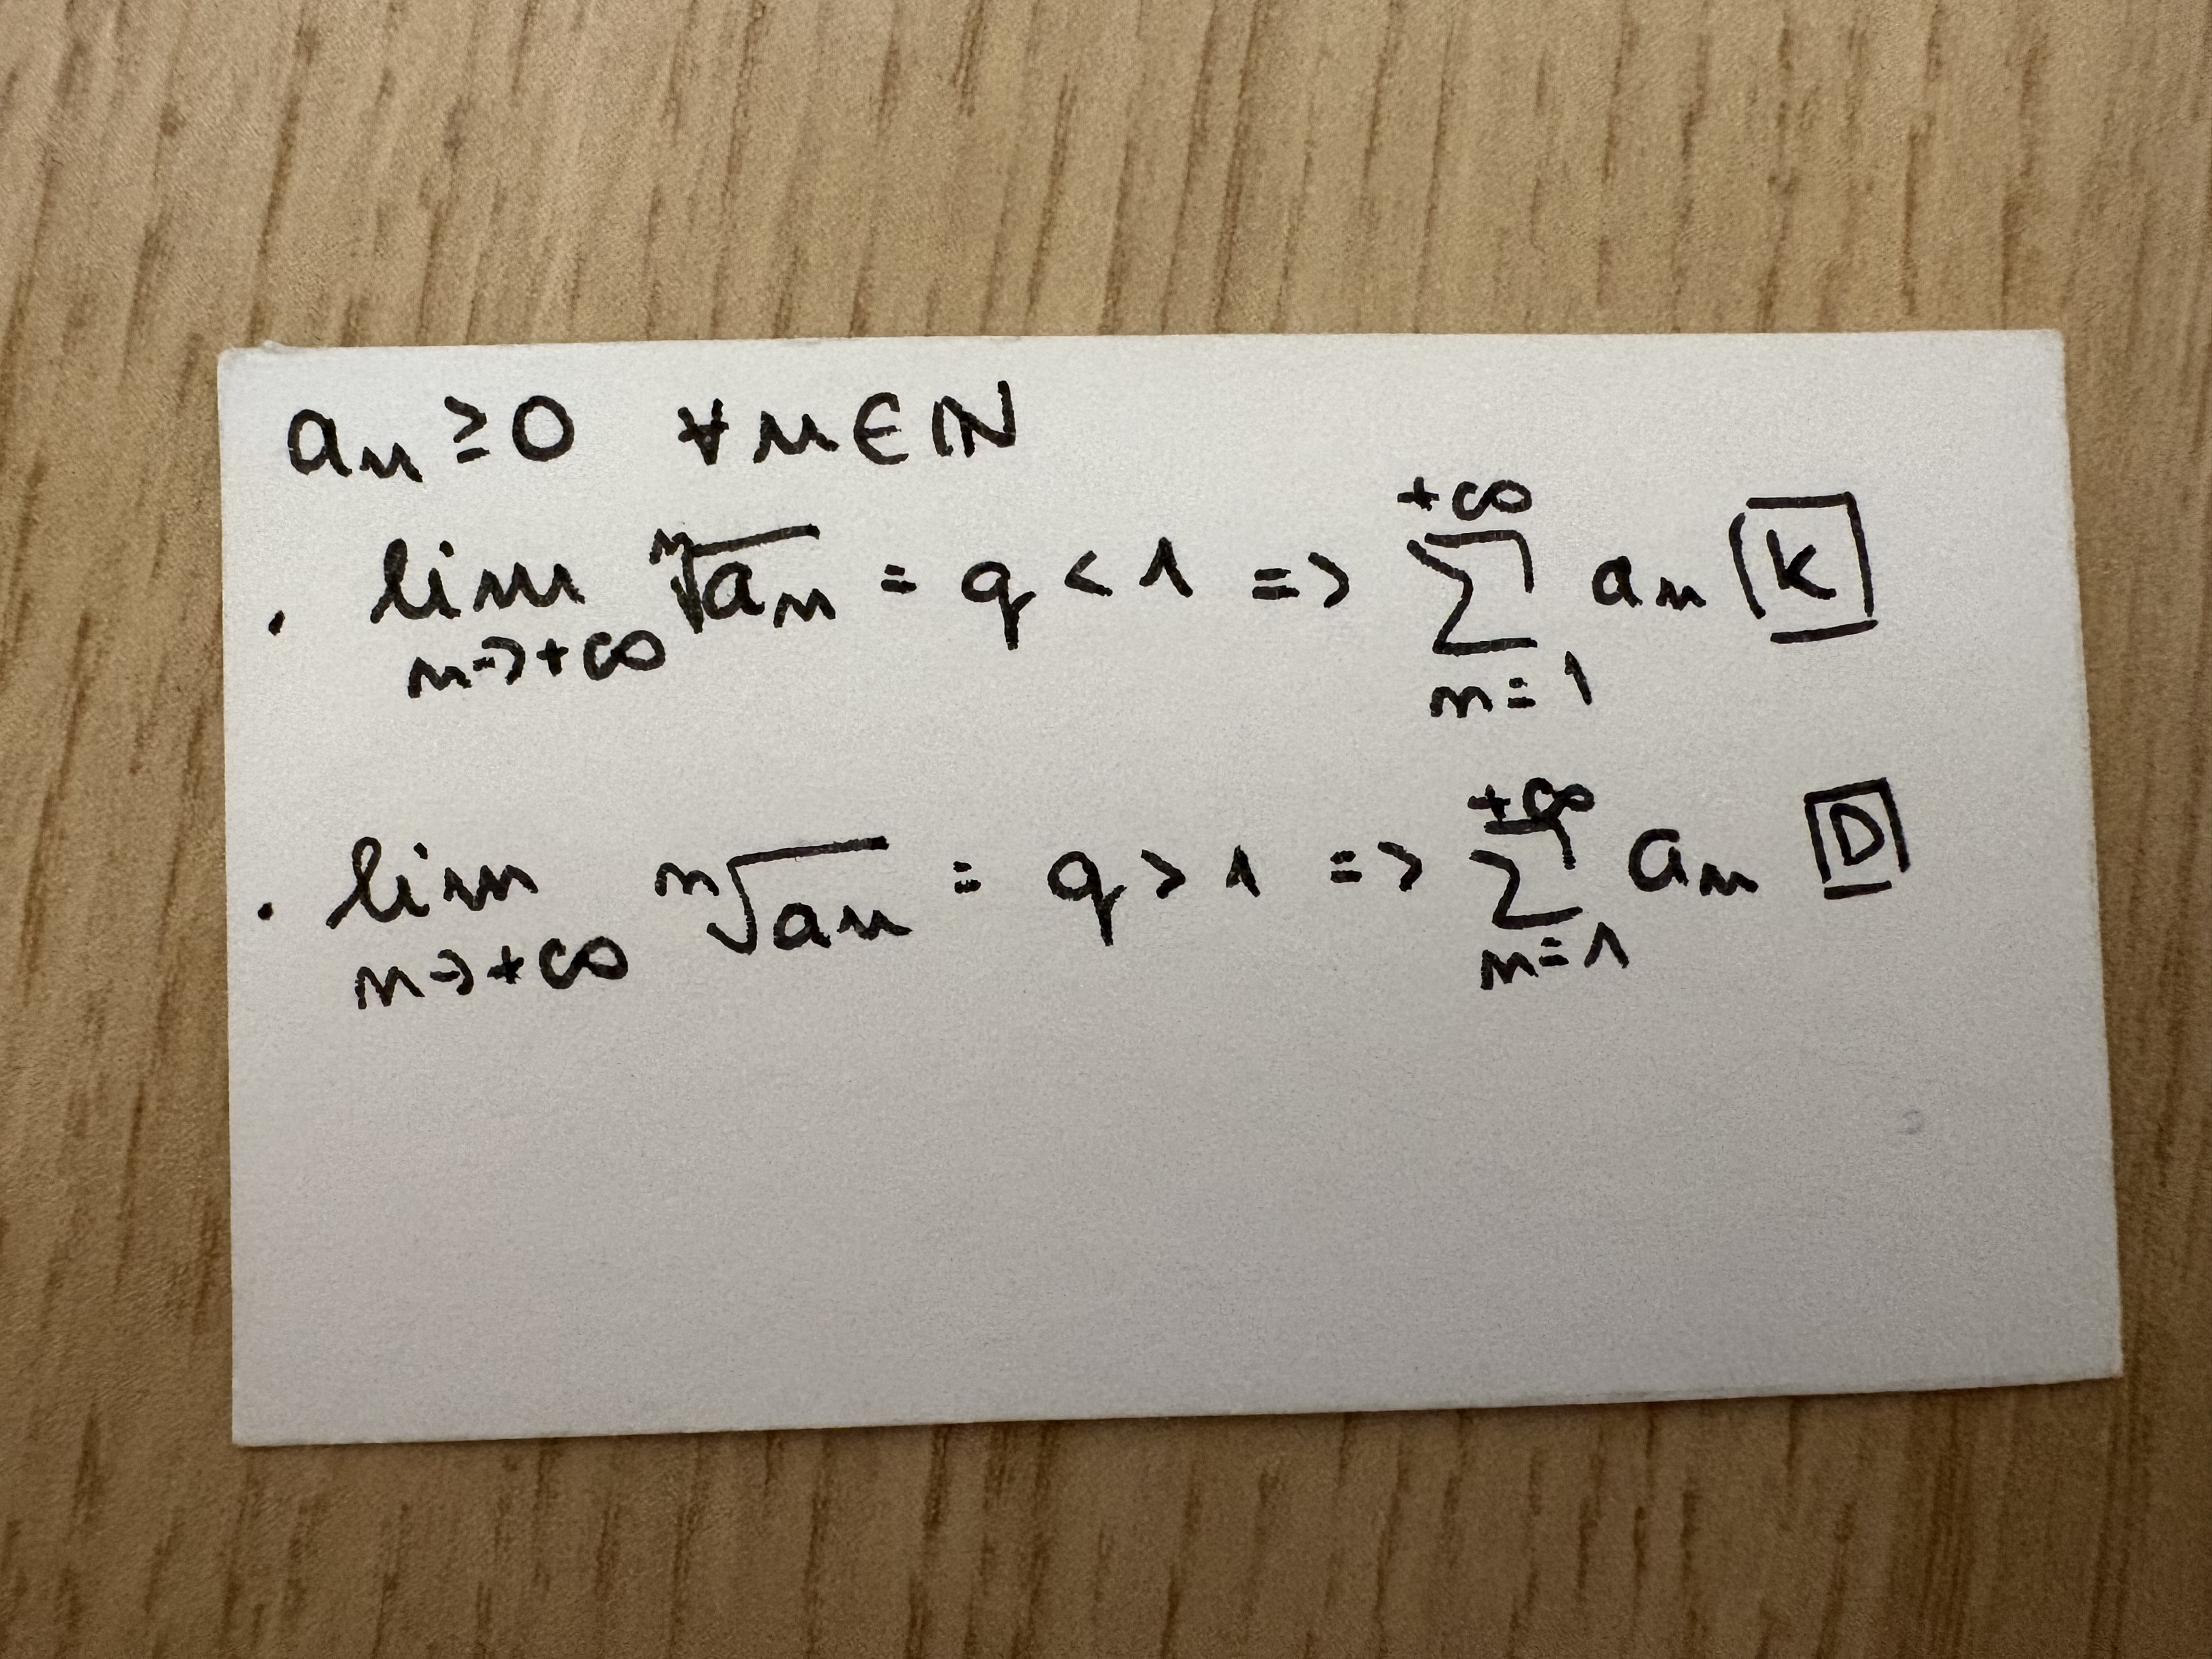 aₙ ≥ 0 ∀n∈ℕ
· lim_{n→+∞} ⁿ√aₙ = q < 1 => ∑_{n=1}^{+∞} aₙ [K]
· lim_{n→+∞} ⁿ√aₙ = q > 1 => ∑_{n=1}^{+∞} aₙ [D]